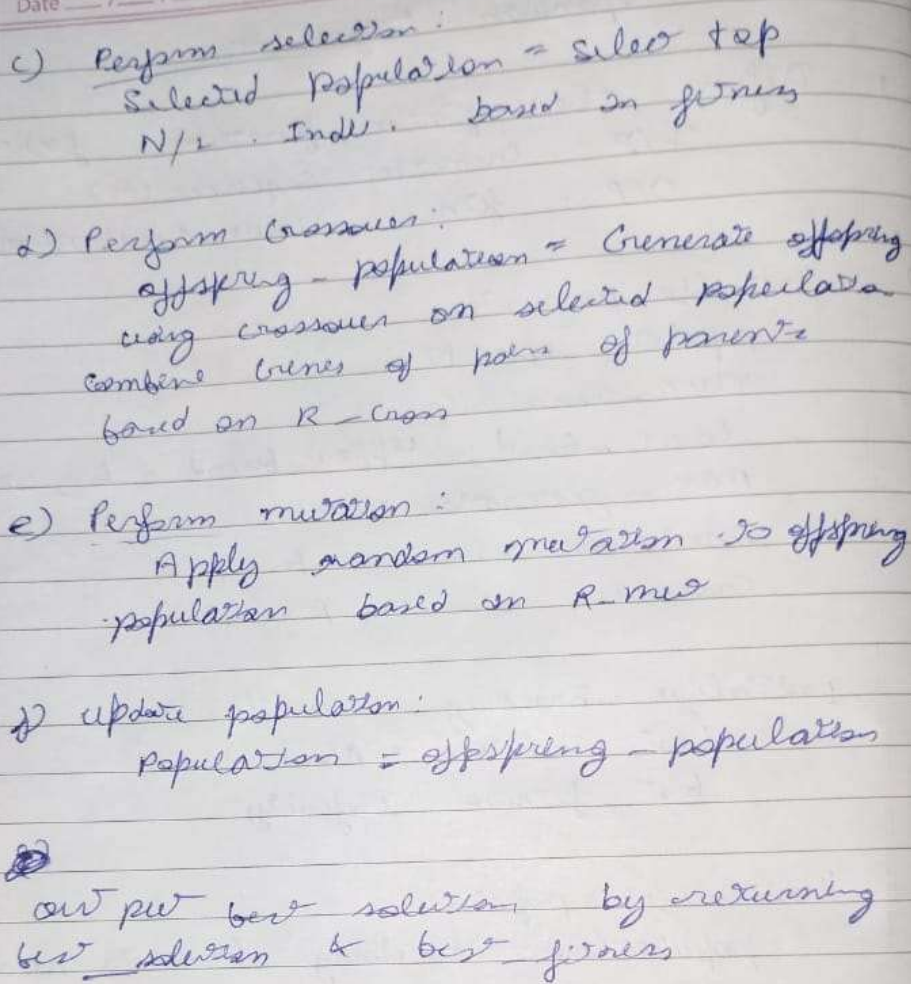 Date
c) Perform selection :
Selected Population = select top
N/2 . Indi . based on fitness
d) Perform Crossover :
offspring - population = Generate offspring
using crossover on selected population
combine Genes of pairs of parents
based on R - Cross
e) Perform mutation :
Apply random mutation to offspring
population based on R - mut
f) update population :
Population = offspring - population
output best solution by returning
best _ solution & best _ fitness